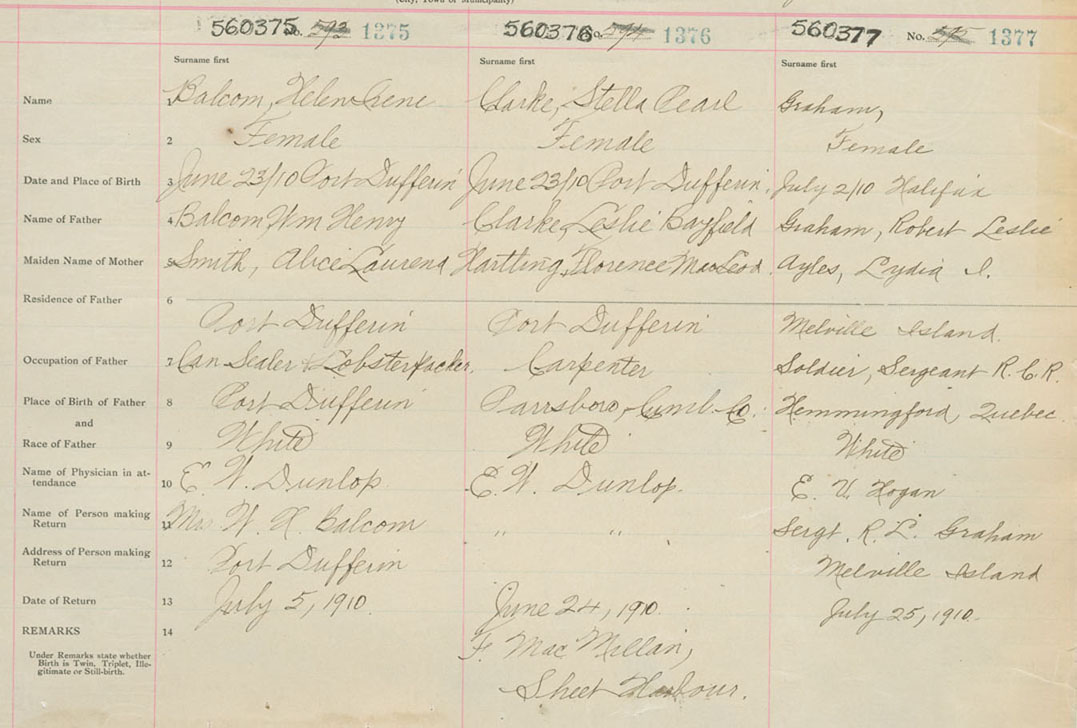 (City, Town or Municipality)
560375 No. 593 1375 560376 No. 594 1376 560377 No. 1377
Surname first Surname first Surname first
Name 1 Balcom, Helen Irene Clarke, Stella Pearl Graham,
Sex 2 Female Female Female
Date and Place of Birth 3 June 23/10 Port Dufferin June 23/10 Port Dufferin. July 2/10 Halifax
Name of Father 4 Balcom Wm Henry Clarke, Leslie Bayfield Graham, Robert Leslie
Maiden Name of Mother 5 Smith, Alice Laurena Hartling, Florence MacLeod. Ayles, Lydia I.
Residence of Father 6
Port Dufferin Port Dufferin Melville Island.
Occupation of Father 7 Can Sealer & Lobster Packer. Carpenter Soldier, Sergeant R.C.R.
Place of Birth of Father 8 Port Dufferin Parrsboro, Cumb. Co. Hemmingford, Quebec.
and
Race of Father 9 White White White
Name of Physician in at-
tendance 10 E. W. Dunlop E. W. Dunlop. E. V. Hogan
Name of Person making
Return 11 Mrs W. H. Balcom " " Sergt. R. L. Graham
Address of Person making
Return 12 Port Dufferin Melville Island
Date of Return 13 July 5, 1910. June 24, 1910. July 25, 1910.
REMARKS 14 F. MacMillan,
Under Remarks state whether
Birth is Twin, Triplet, Ille-
gitimate or Still-birth.
Sheet Harbour.